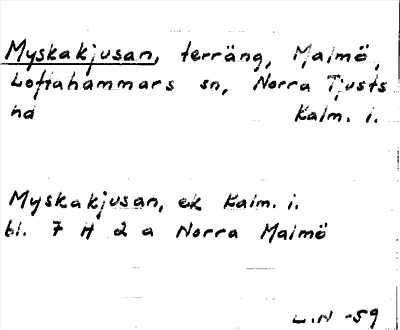 Myskakjusan, terräng, Malmö,
Loftahammars sn, Norra Tjusts
hd Kalm. l.
Myskakjusan, ek Kalm. l.
bl. 7 H 2 a Norra Malmö
L.N -59